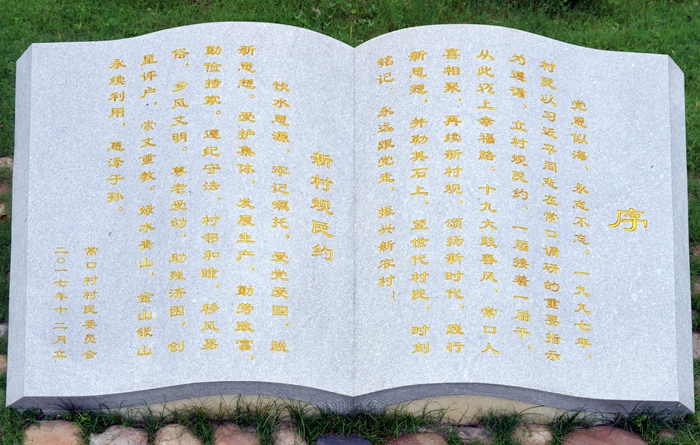 序
党恩似海，永志不忘。一九九七年，
村民以习近平同志在常口调研的重要指示
为遵循，立村规民约，一届接着一届干，
从此迈上幸福路。十九大鼓春风，常口人
喜相聚，再续新村规，颂扬新时代，践行
新思想，并勒其石上，望世代村民，时刻
铭记 永远跟党走，振兴新农村！
新村规民约
饮水思源，牢记嘱托，爱党爱国，践
新思想。爱护集体，发展生产，勤劳致富，
勤俭持家。遵纪守法，村邻和睦，移风易
俗，乡风文明。尊老爱幼，助残济困，创
星评户，崇文重教。绿水青山，金山银山
永续利用，惠泽子孙。
常口村村民委员会
二〇一七年十二月立